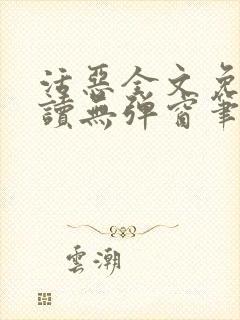 活惡全文免
讀無彈窗筆
雲潮